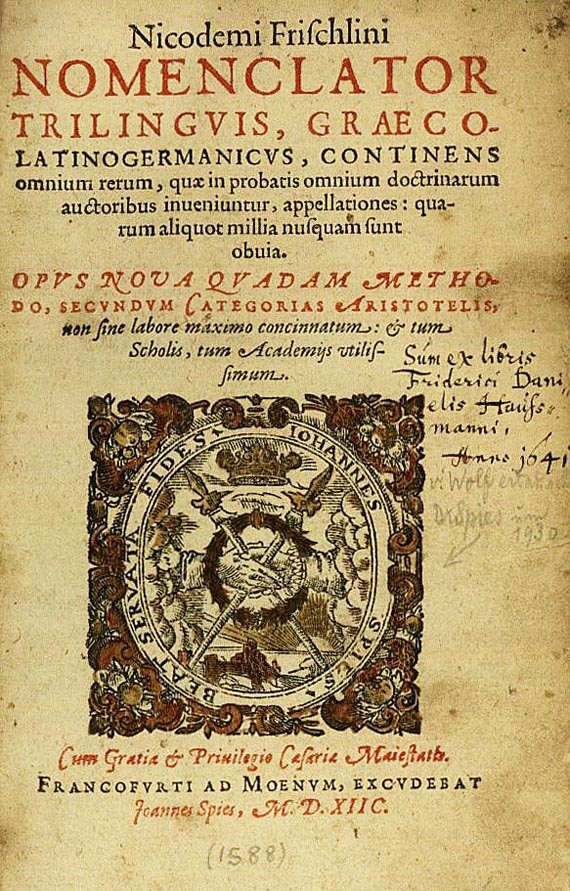 Nicodemi Friſchlini
NOMENCLATOR
TRILINGVIS, GRAECO-
LATINOGERMANICVS, CONTINENS
omnium rerum, quæ in probatis omnium doctrinarum
auctoribus inueniuntur, appellationes : qua-
rum aliquot millia nuſquam ſunt
obuia.
OPVS NOVA QVADAM METHO-
DO, SECVNDVM CATEGORIAS ARISTOTELIS,
non ſine labore maximo concinnatum : & tum
Scholis, tum Academijs vtiliſ-
ſimum.
Sum ex libris
Friderici Dani
elis Hauſs-
manni,
Anno 1641
v. Wolf
Dr Spies um
1930
BEAT SERVATA FIDES
IOHANNES SPIES
Cum Gratia & Priuilegio Cæſariæ Maieſtatis.
FRANCOFVRTI AD MOENVM, EXCVDEBAT
Joannes Spies, M. D. XIIC.
(1588)